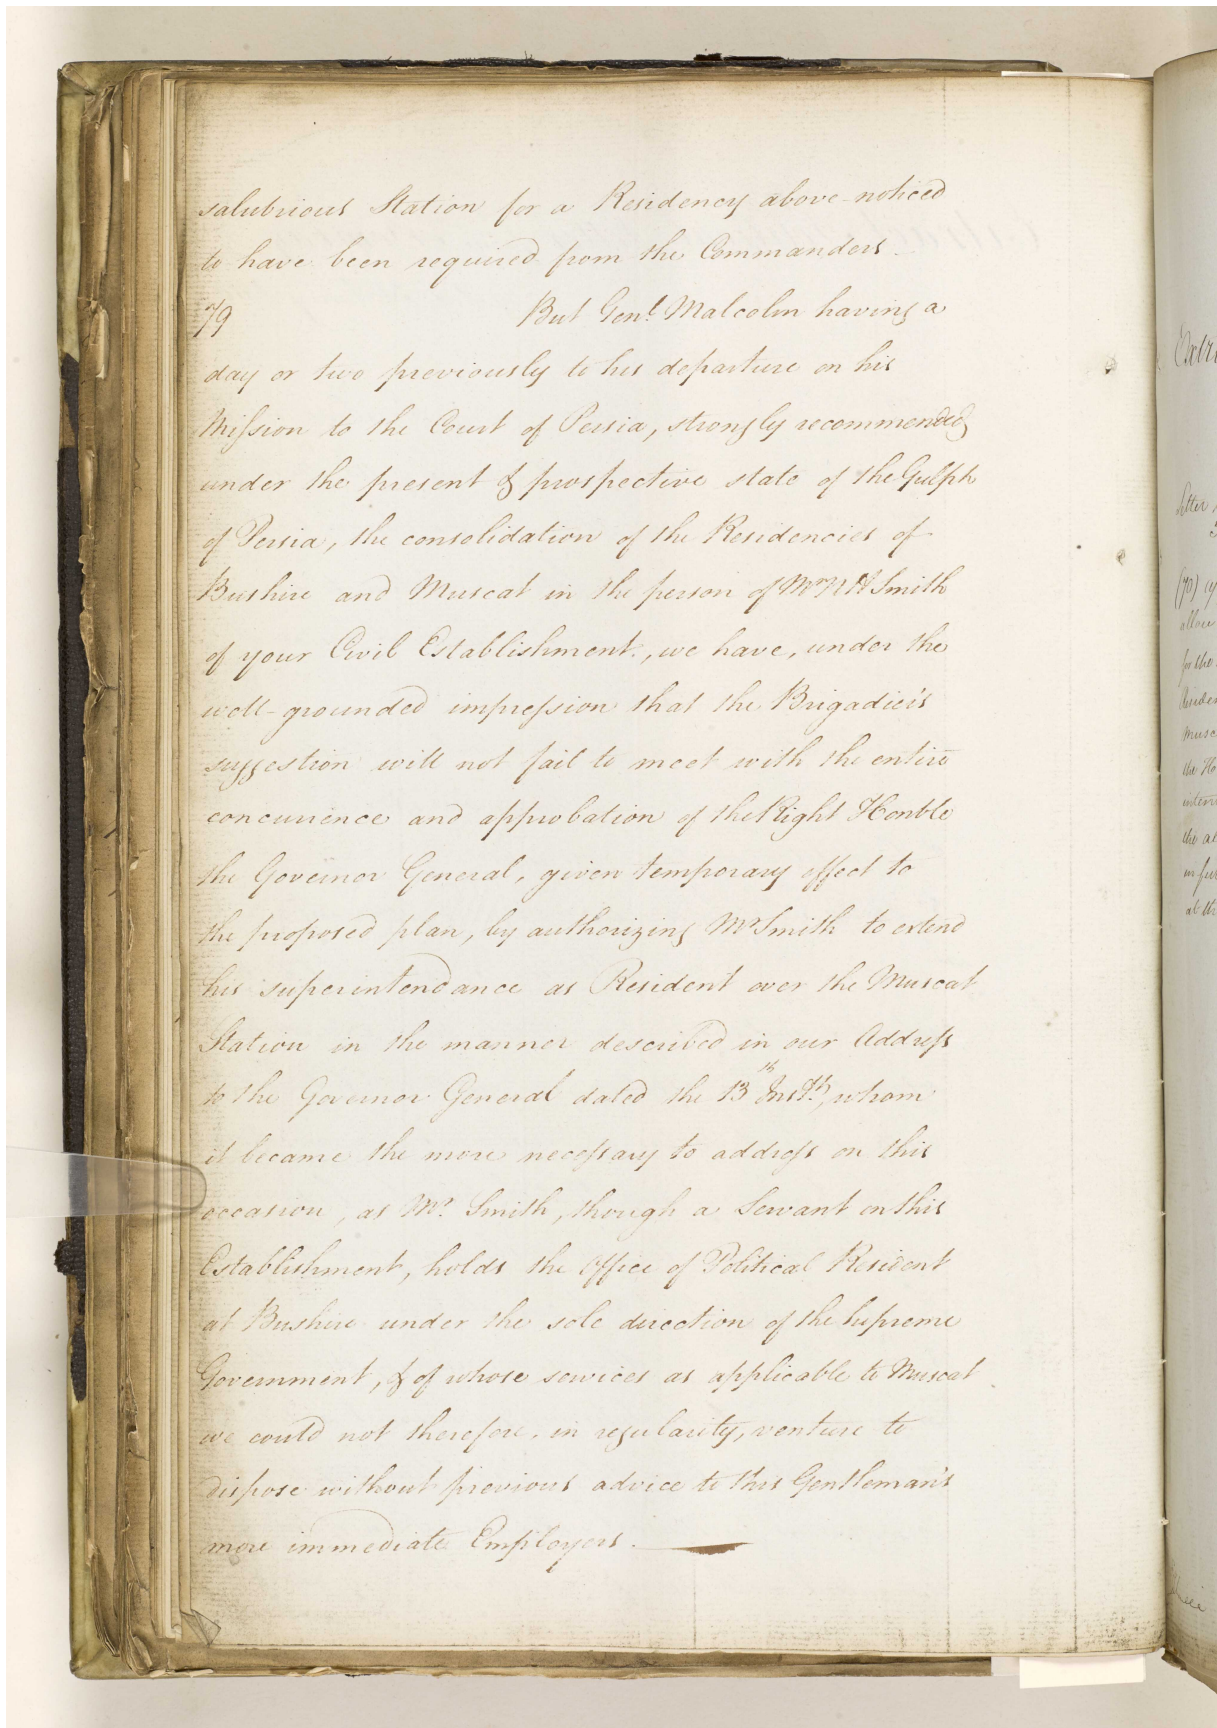 salubrious Station for a Residency above-noticed
to have been required from the Commanders.
79 But Genl. Malcolm having a
day or two previously to his departure on his
Mission to the Court of Persia, strongly recommended,
under the present & prospective state of the Gulph
of Persia, the consolidation of the Residencies of
Bushire and Muscat in the person of Mr N H Smith
of your Civil Establishment, we have, under the
well-grounded impression that the Brigadier's
suggestion will not fail to meet with the entire
concurrence and approbation of the Right Honble
the Governor General, given temporary effect to
the proposed plan, by authorizing Mr Smith to extend
his superintendance as Resident over the Muscat
Station in the manner described in our Address
to the Governor General dated the 13th Inst., whom
it became the more necessary to address on this
occasion, as Mr. Smith, though a Servant on this
Establishment, holds the Office of Political Resident
at Bushire under the sole direction of the Supreme
Government, & of whose services as applicable to Muscat
we could not therefore, in regularity, venture to
dispose without previous advice to this Gentleman's
more immediate Employers.
Extr
letter
(70)
allow
for the
Residen
Musc
the Ho
interv
the al
in fur
at th